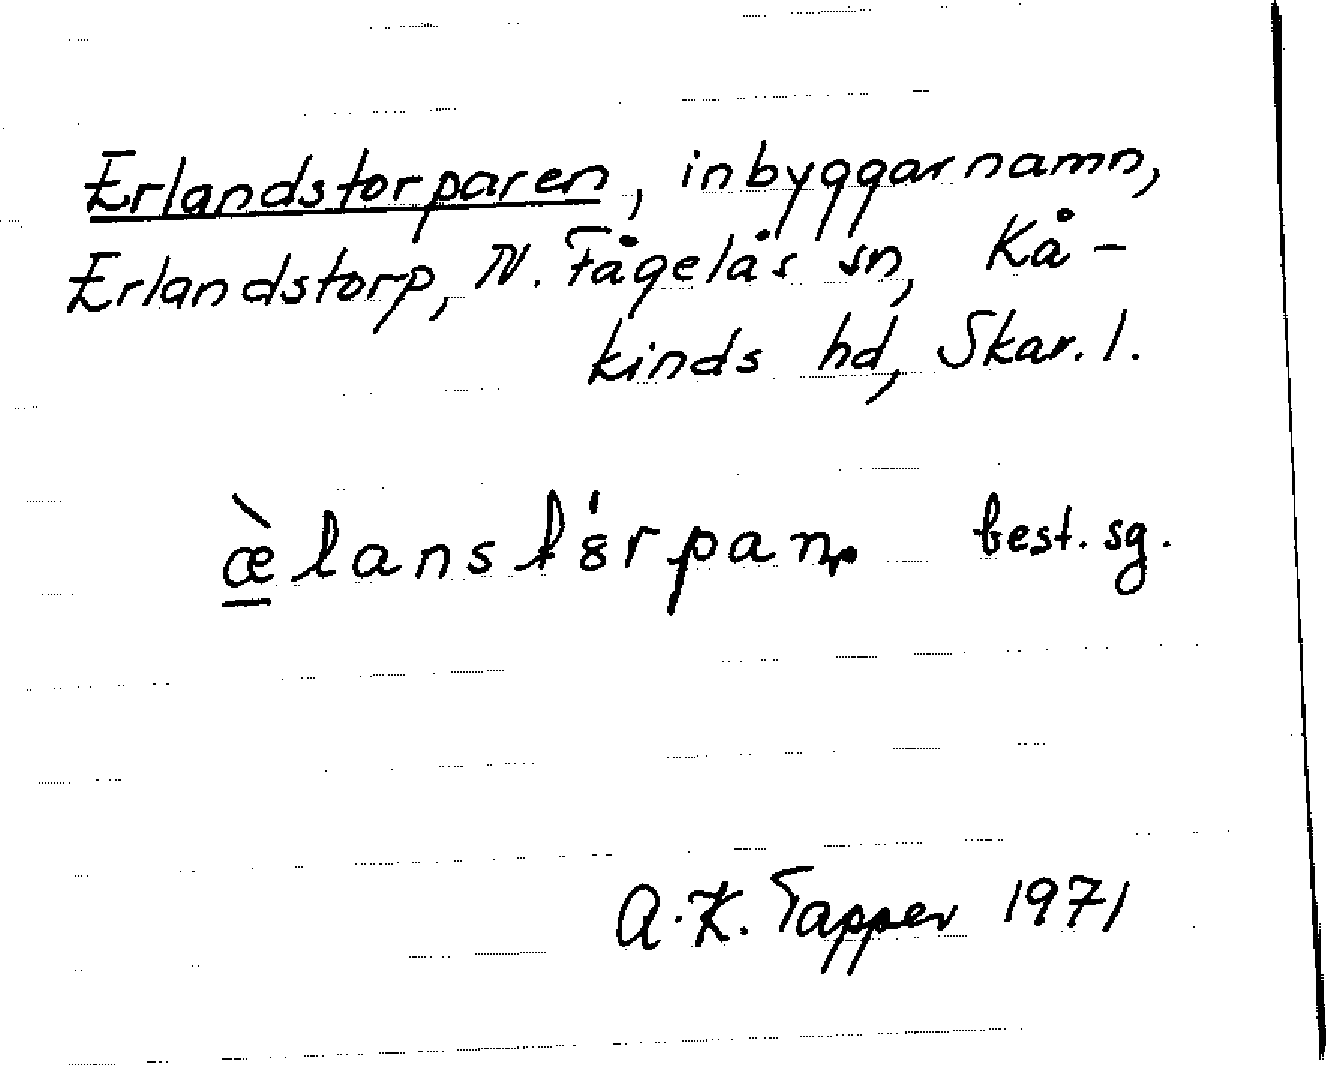 Erlandstorparen, inbyggarnamn,
Erlandstorp, N. Fågelås sn, Kå-
kinds hd, Skar. l.
best. sg.
A.K. Tapper 1971